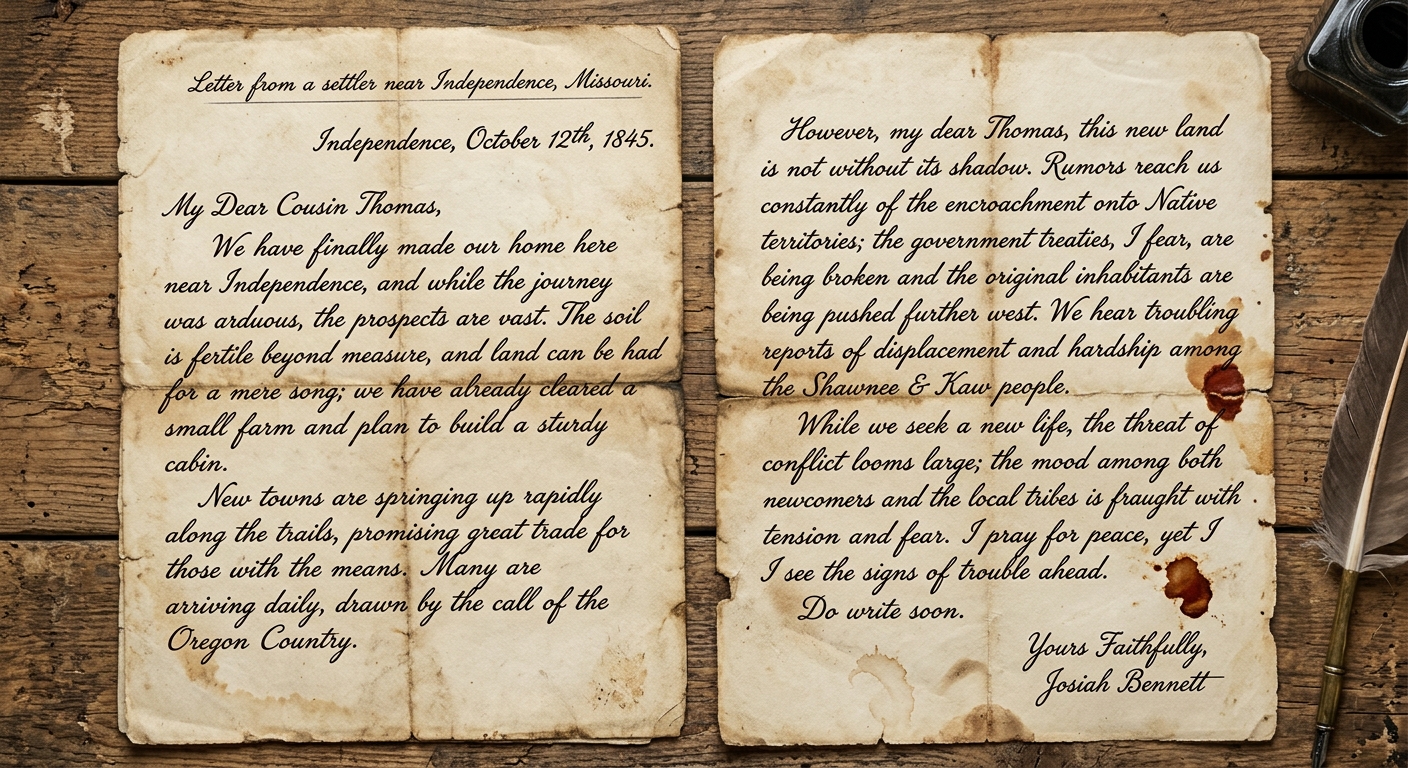 Letter from a settler near Independence, Missouri.
Independence, October 12th, 1845.
My Dear Cousin Thomas,
We have finally made our home here
near Independence, and while the journey
was arduous, the prospects are vast. The soil
is fertile beyond measure, and land can be had
for a mere song; we have already cleared a
small farm and plan to build a sturdy
cabin.
New towns are springing up rapidly
along the trails, promising great trade for
those with the means. Many are
arriving daily, drawn by the call of the
Oregon Country.
However, my dear Thomas, this new land
is not without its shadow. Rumors reach us
constantly of the encroachment onto Native
territories; the government treaties, I fear, are
being broken and the original inhabitants are
being pushed further west. We hear troubling
reports of displacement and hardship among
the Shawnee & Kaw people.
While we seek a new life, the threat of
conflict looms large; the mood among both
newcomers and the local tribes is fraught with
tension and fear. I pray for peace, yet I
I see the signs of trouble ahead.
Do write soon.
Yours Faithfully,
Josiah Bennett